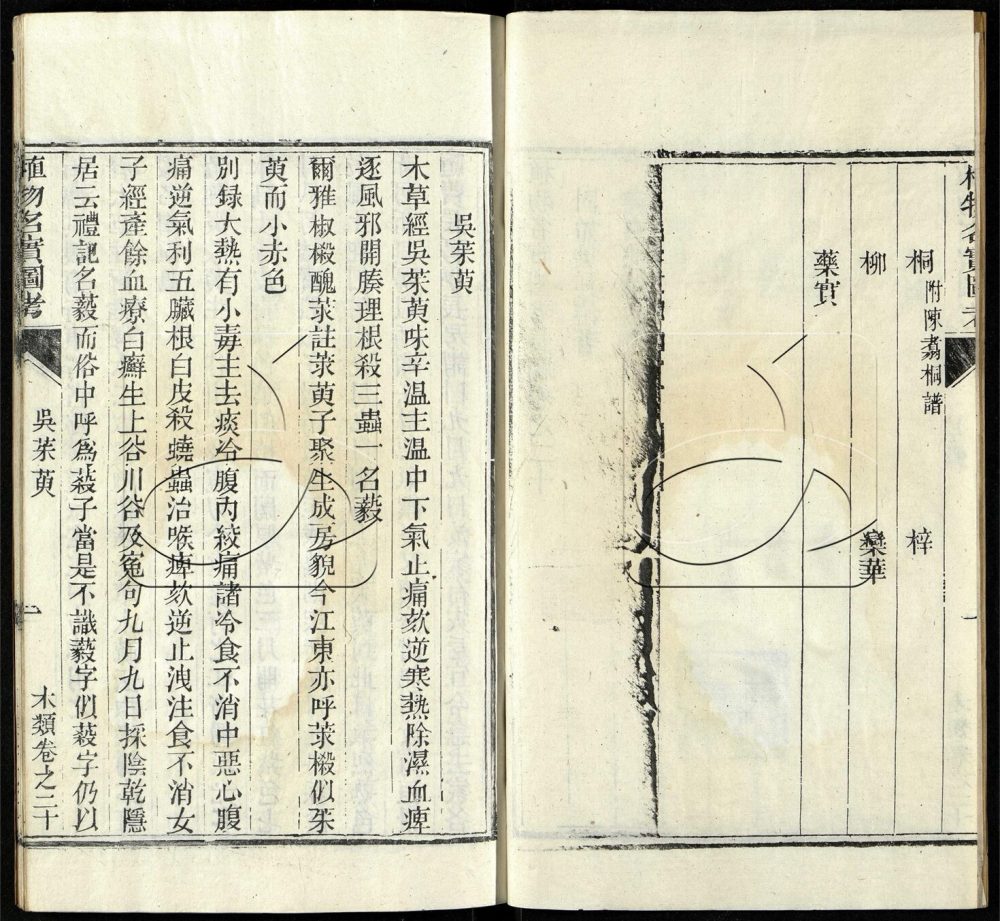 植物名實圖考
桐 附陳翥桐譜 梓
柳 欒華
藥實
一
吳茱萸
木草經吳茱萸味辛溫主溫中下氣止痛欬逆寒熱除濕血痺
逐風邪開腠理根殺三蟲一名藙
爾雅椒樧醜莍註莍萸子聚生成房貌今江東亦呼莍樧似茱
萸而小赤色
別録大熱有小毒主去痰冷腹內絞痛諸冷食不消中惡心腹
痛逆氣利五臟根白皮殺蟯蟲治喉痺欬逆止洩注食不消女
子經產餘血療白癬生上谷川谷及冤句九月九日採陰乾隱
居云禮記名藙而俗中呼爲蔱子當是不識藙字似蔱字仍以
植物名實圖考 吳茱萸 一 木類卷之三十